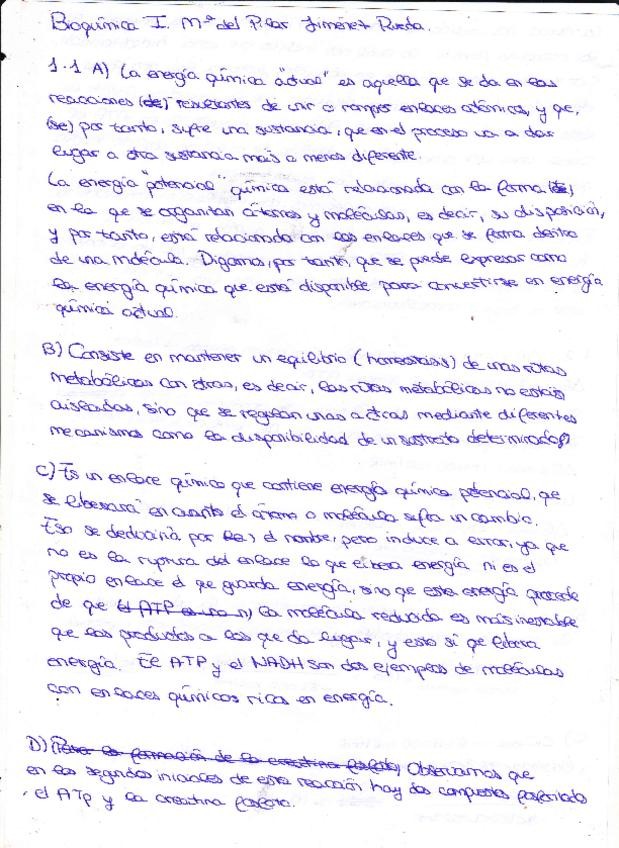 Bioquímica I. Mª del Pilar Jiménez Rueda.
1.1 A) La energía química "actual" es aquella que se da en las
reacciones (de) resultantes de unir o romper enlaces atómicos, y que,
(se) por tanto, sufre una sustancia, que en el proceso va a dar
lugar a otra sustancia más o menos diferente.
La energía "potencial" química está relacionada con la forma (de)
en la que se organizan átomos y moléculas, es decir, su disposición,
y por tanto, está relacionada con los enlaces que se forma dentro
de una molécula. Digamos, por tanto, que se puede expresar como
la energía química que está disponible para convertirse en energía
química actual.
B) Consiste en mantener un equilibrio (homeostasis) de unas rutas
metabólicas con otras, es decir, las rutas metabólicas no están
aisladas, sino que se regulan unas a otras mediante diferentes
mecanismos como la disponibilidad de un sustrato determinado.
C) Es un enlace químico que contiene energía química potencial, que
se liberará en cuanto el átomo o molécula sufra un cambio.
Eso se deduciría por (la) el nombre, pero induce a error, ya que
no es la ruptura del enlace lo que libera energía ni es el
propio enlace el que guarda energía, sino que esta energía procede
de que (el ATP es una n) la molécula reducida es más inestable
que los productos a los que da lugar, y esto sí que libera
energía. El ATP y el NADH son dos ejemplos de moléculas
con enlaces químicos ricos en energía.
D) (Para la formación de la creatina fosfato) Observamos que
en los segundos iniciales de esta reacción hay dos compuestos fosforilados
, el ATP y la creatina fosfato.